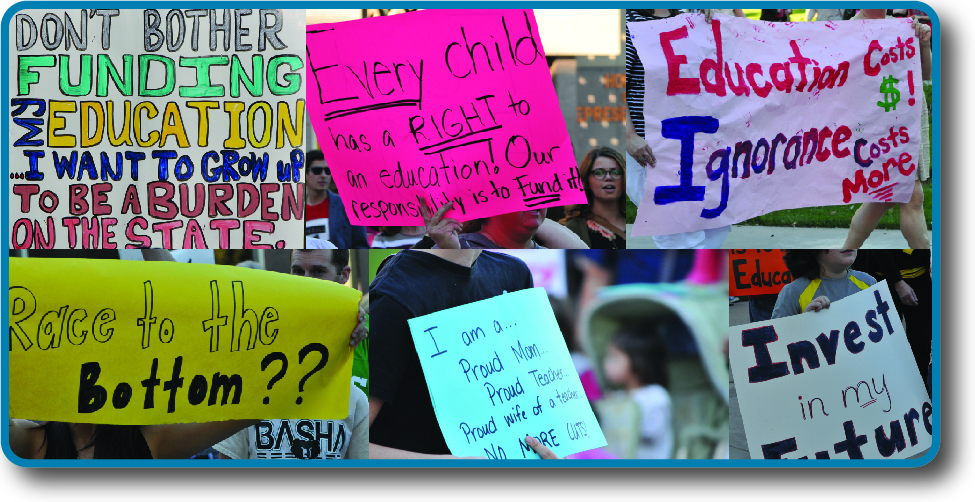 DON'T BOTHER
FUNDING
MY EDUCATION
...I WANT TO GROW UP
TO BE A BURDEN
ON THE STATE.
Every child
has a RIGHT to
an education! Our
responsibility is to Fund it!
Education Costs
$!
Ignorance Costs
More
Race to the
Bottom??
BASHA
I am a...
Proud Mom...
Proud Teacher...
Proud wife of a teacher
No MORE CUTS!
Educa
Invest
in my
Future